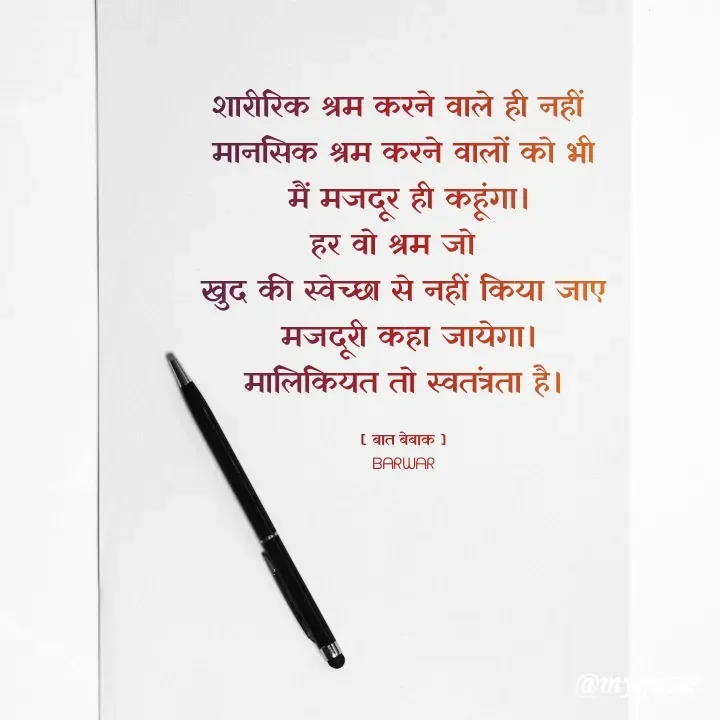 शारीरिक श्रम करने वाले ही नहीं
मानसिक श्रम करने वालों को भी
मैं मजदूर ही कहूंगा।
हर वो श्रम जो
खुद की स्वेच्छा से नहीं किया जाए
मजदूरी कहा जायेगा।
मालिकियत तो स्वतंत्रता है।
[ बात बेबाक ]
BARWAR